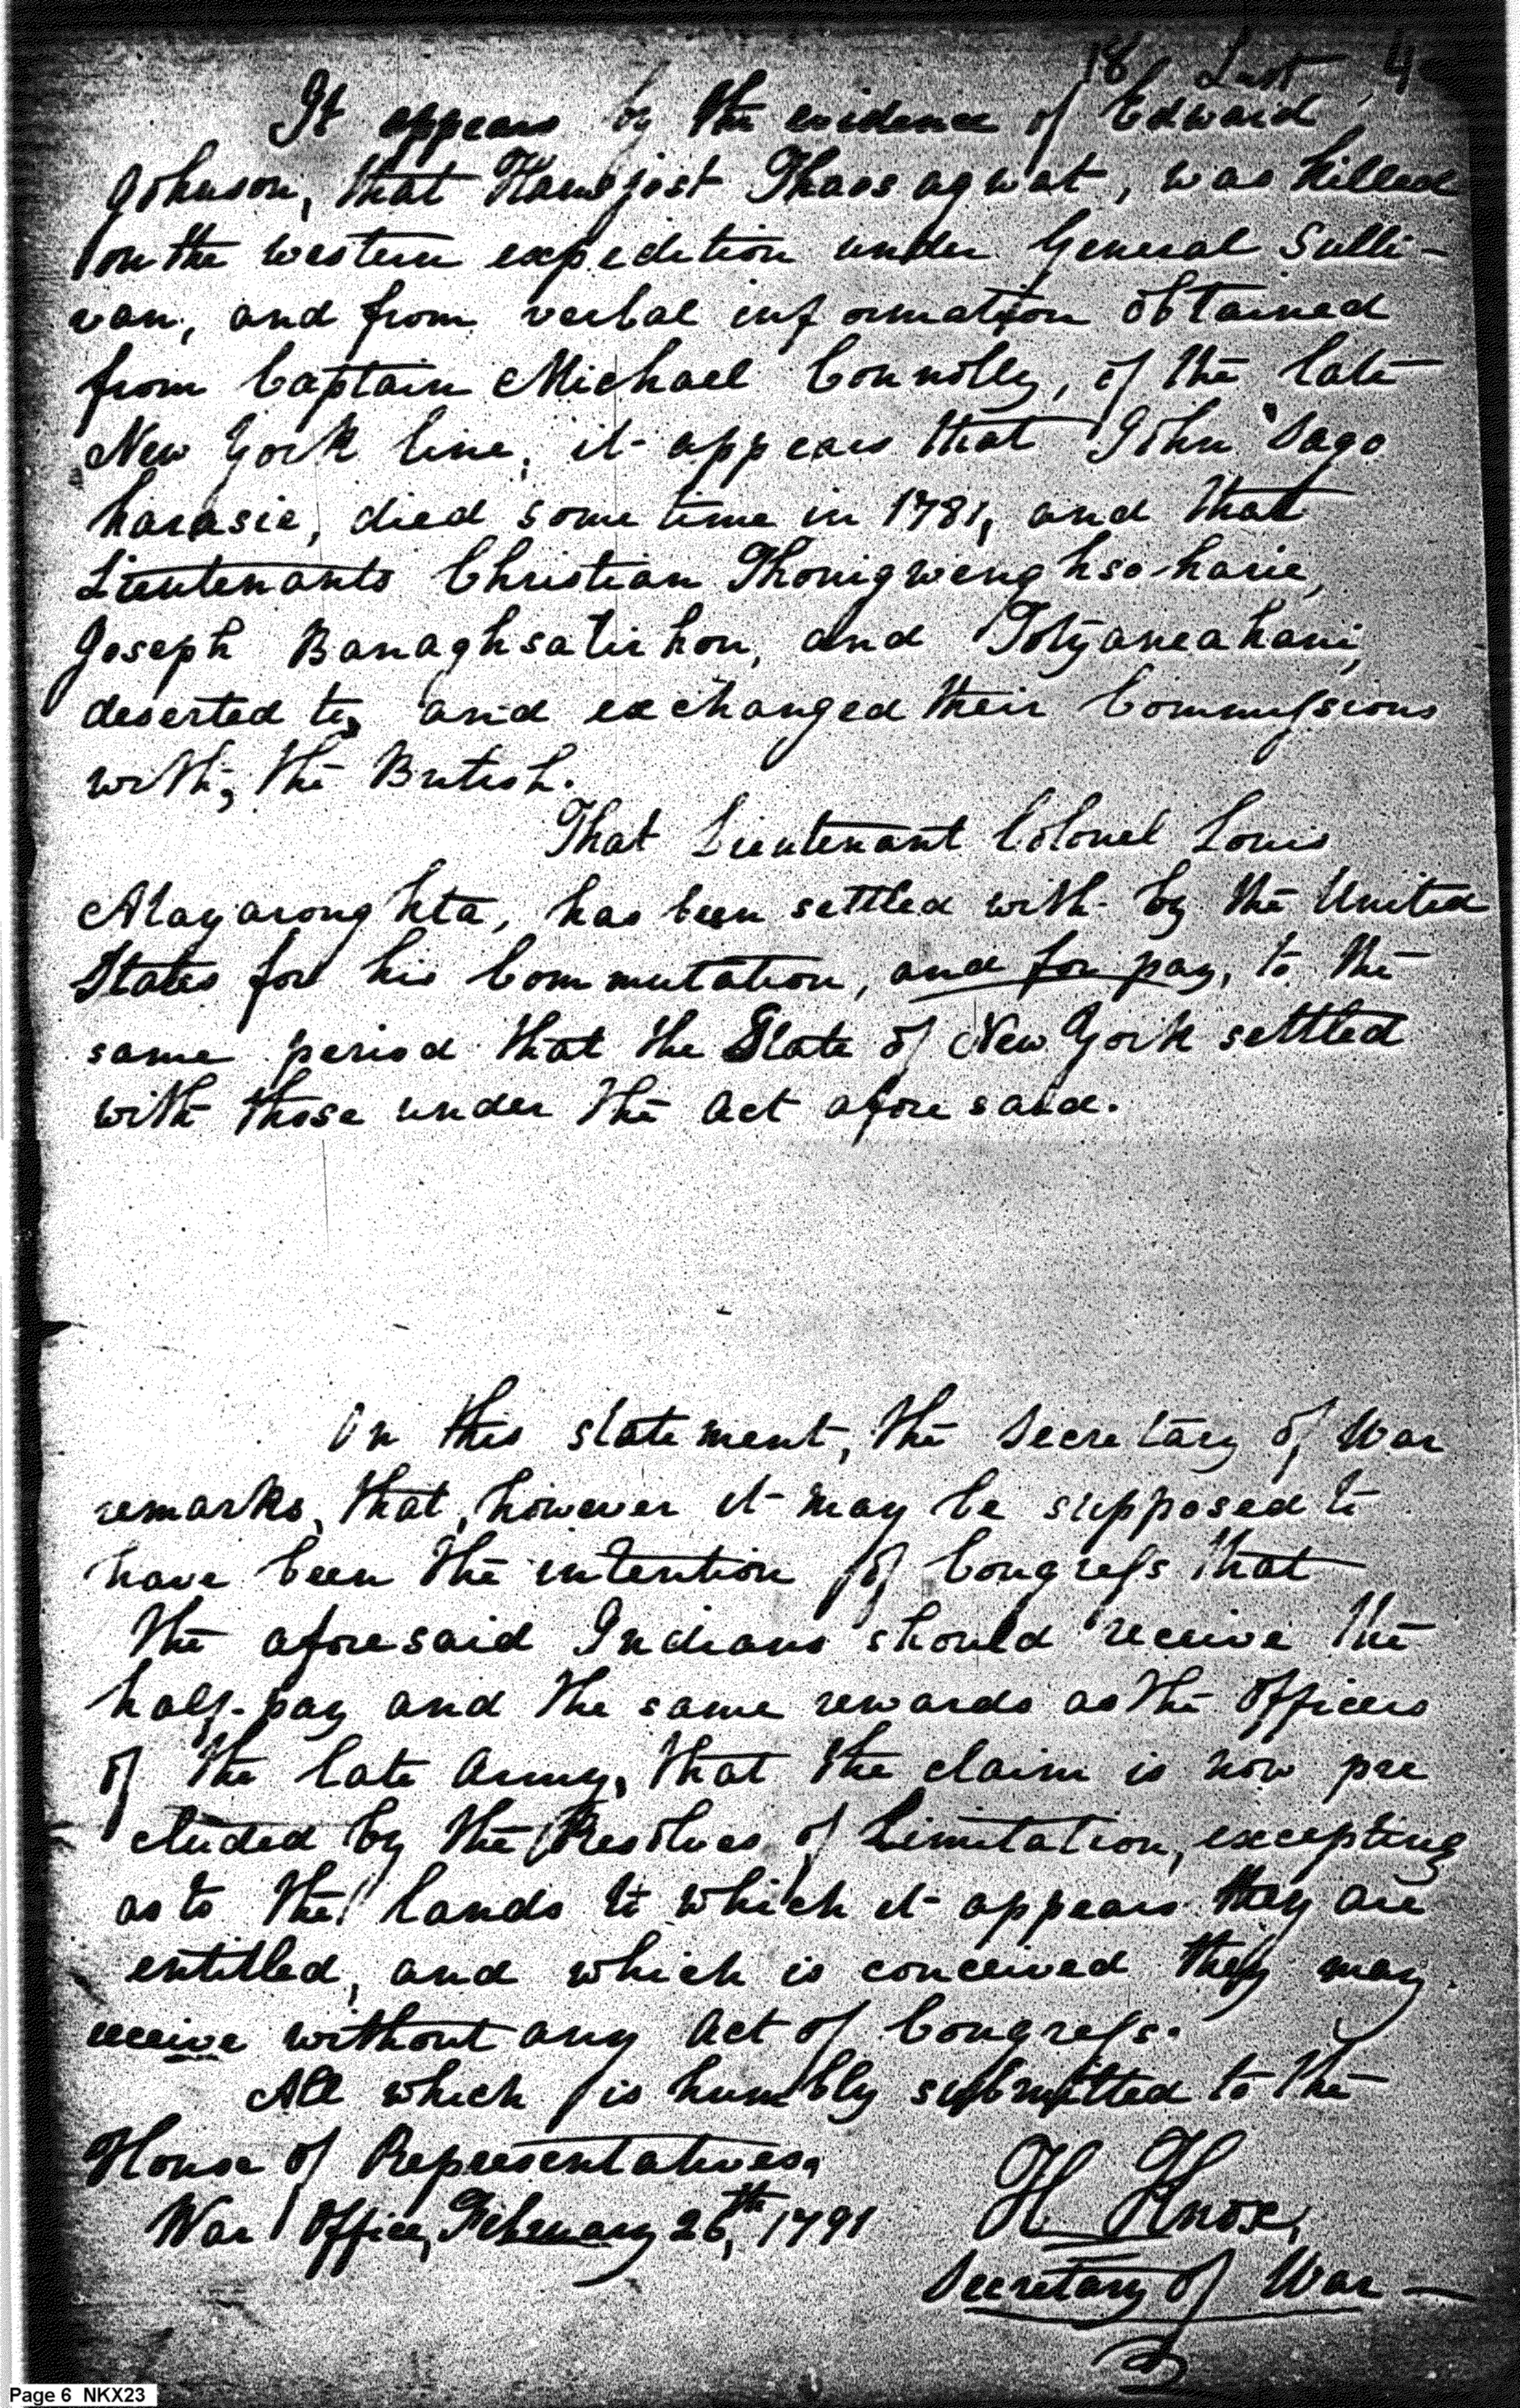 18 Last 4
It appears by the evidence of Edward
Johnson, that Hansjost Thaosagwat, was killed
on the western expedition under General Sulli-
van, and from verbal information obtained
from Captain Michael Connolly, of the late
New York line, it appears that John Sago
harasie, died some time in 1781, and that
Lieutenants Christian Thonigwenghsoharie,
Joseph Banaghsatirhon, and Totyaneahani,
deserted to, and exchanged their Commissions
with, the British.
That Lieutenant Colonel Louis
Atayaronghta, has been settled with by the United
States for his Commutation, and for pay, to the
same period that the State of New York settled
with those under the Act aforesaid.
On this statement, the Secretary of War
remarks, that, however it may be supposed to
have been the intention of Congress that
the aforesaid Indians should receive the
half-pay and the same rewards as the Officers
of the late Army, that the claim is now pre
cluded by the Resolves of Limitation, excepting
as to the lands to which it appears they are
entitled, and which is conceived they may
receive without any Act of Congress.
All which is humbly submitted to the
House of Representatives.
War Office, February 26th, 1791
H Knox,
Secretary of War
Page 6 NKX23